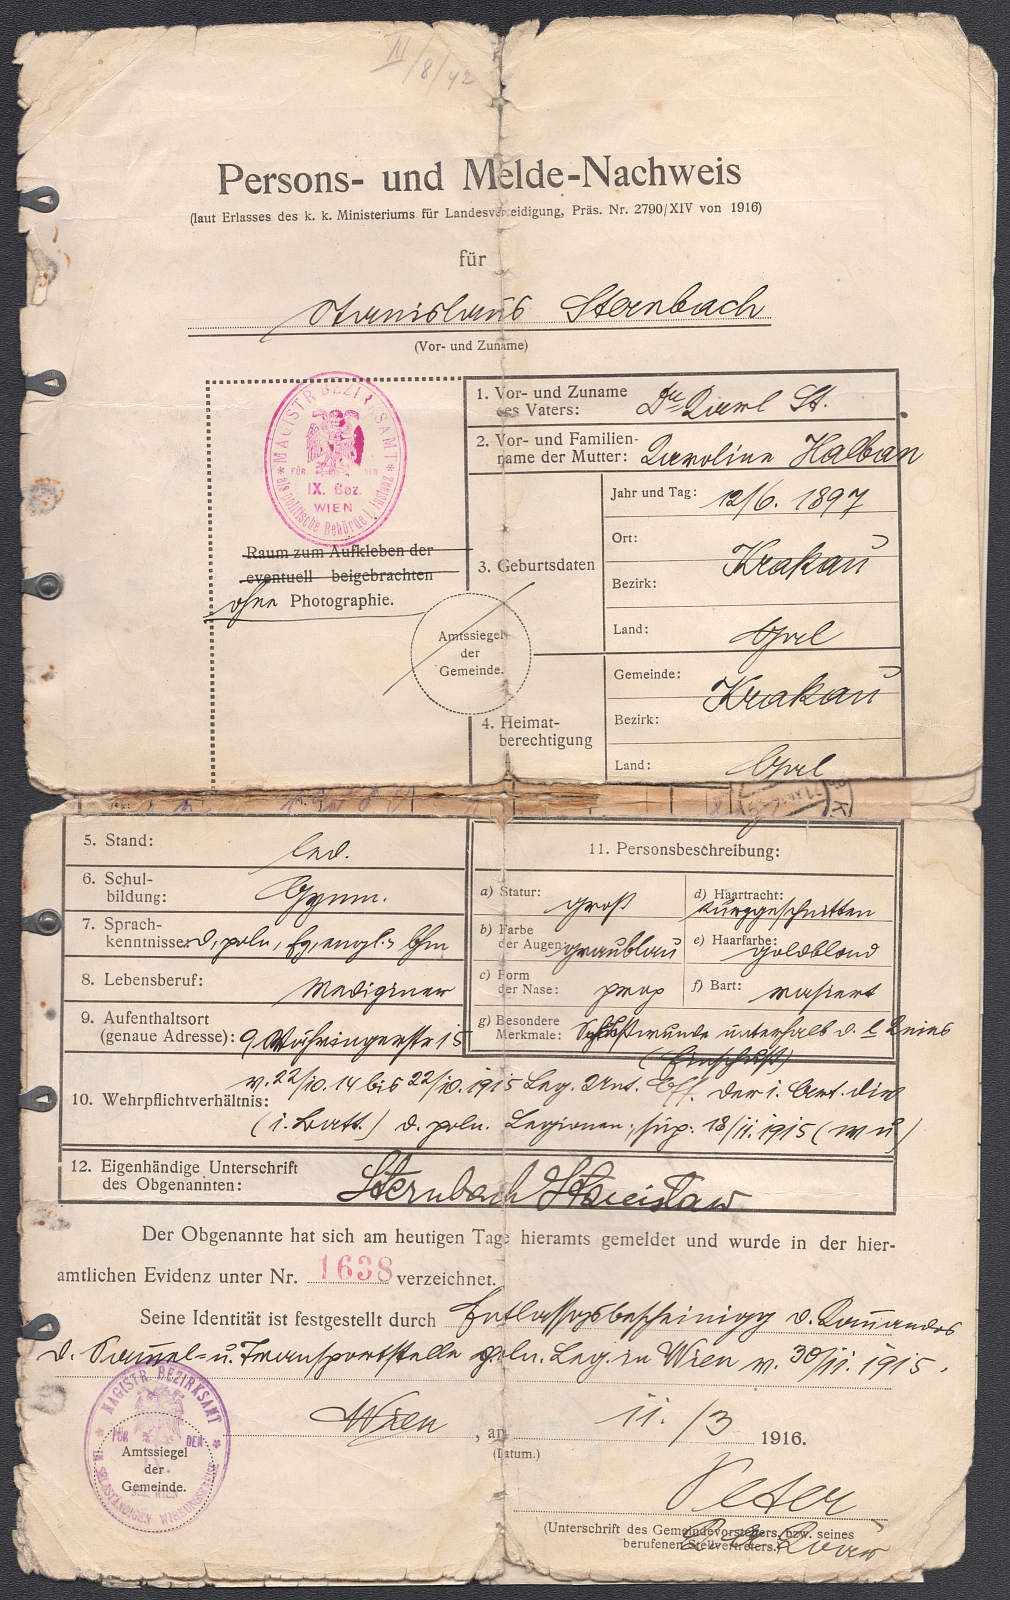 II/8/42
Persons- und Melde-Nachweis
(laut Erlasses des k. k. Ministeriums für Landesverteidigung, Präs. Nr. 2790/XIV von 1916)
für
Stanislaus Sternbach
(Vor- und Zuname)
MAGISTR. BEZIRKSAMT
FÜR DEN
IX. Bez.
WIEN
als politische Behörde I. Instanz
Raum zum Aufkleben der
eventuell beigebrachten
ohne Photographie.
Amtssiegel
der
Gemeinde.
1. Vor- und Zuname
des Vaters: Dr Karl St.
2. Vor- und Familien-
name der Mutter: Karoline Halban
3. Geburtsdaten
Jahr und Tag: 12/6. 1897
Ort: Krakau
Bezirk:
Land: Gal
4. Heimat-
berechtigung
Gemeinde: Krakau
Bezirk:
Land: Gal
5. Stand: led.
6. Schul-
bildung: Gymn.
7. Sprach-
kenntnisse: d, poln, fz, engl,
8. Lebensberuf: Mediziner
9. Aufenthaltsort
(genaue Adresse): 9 Währingerstr 15
11. Personsbeschreibung:
a) Statur: groß
b) Farbe
der Augen: graublau
c) Form
der Nase: prop
d) Haartracht: kurzgeschnitten
e) Haarfarbe: goldblond
f) Bart: rasiert
g) Besondere
Merkmale: Schußwunde unterhalb d. l Knies
(Einschuß)
10. Wehrpflichtverhältnis: v. 22/10. 14 bis 22/10. 1915 Leg. Unt. Off. der i. Art. div
(i. Batt.) d. poln. Legionen, sup. 18/11. 1915 (w u)
12. Eigenhändige Unterschrift
des Obgenannten: Sternbach Stanislaw
Der Obgenannte hat sich am heutigen Tage hieramts gemeldet und wurde in der hier-
amtlichen Evidenz unter Nr. 1638 verzeichnet.
Seine Identität ist festgestellt durch Entlassgsbescheinigg d. Kommandos
d. Sammel- u. Transportstelle poln. Leg. in Wien v. 30/11. 1915.
MAGISTR. BEZIRKSAMT
FÜR DEN
IX.
BEZ. WIEN
IM SELBSTÄNDIGEN WIRKUNGSKREISE
Amtssiegel
der
Gemeinde.
Wien, am 11. /3 1916.
(Datum.)
Peter
(Unterschrift des Gemeindevorstehers, bzw. seines
berufenen Stellvertreters.)